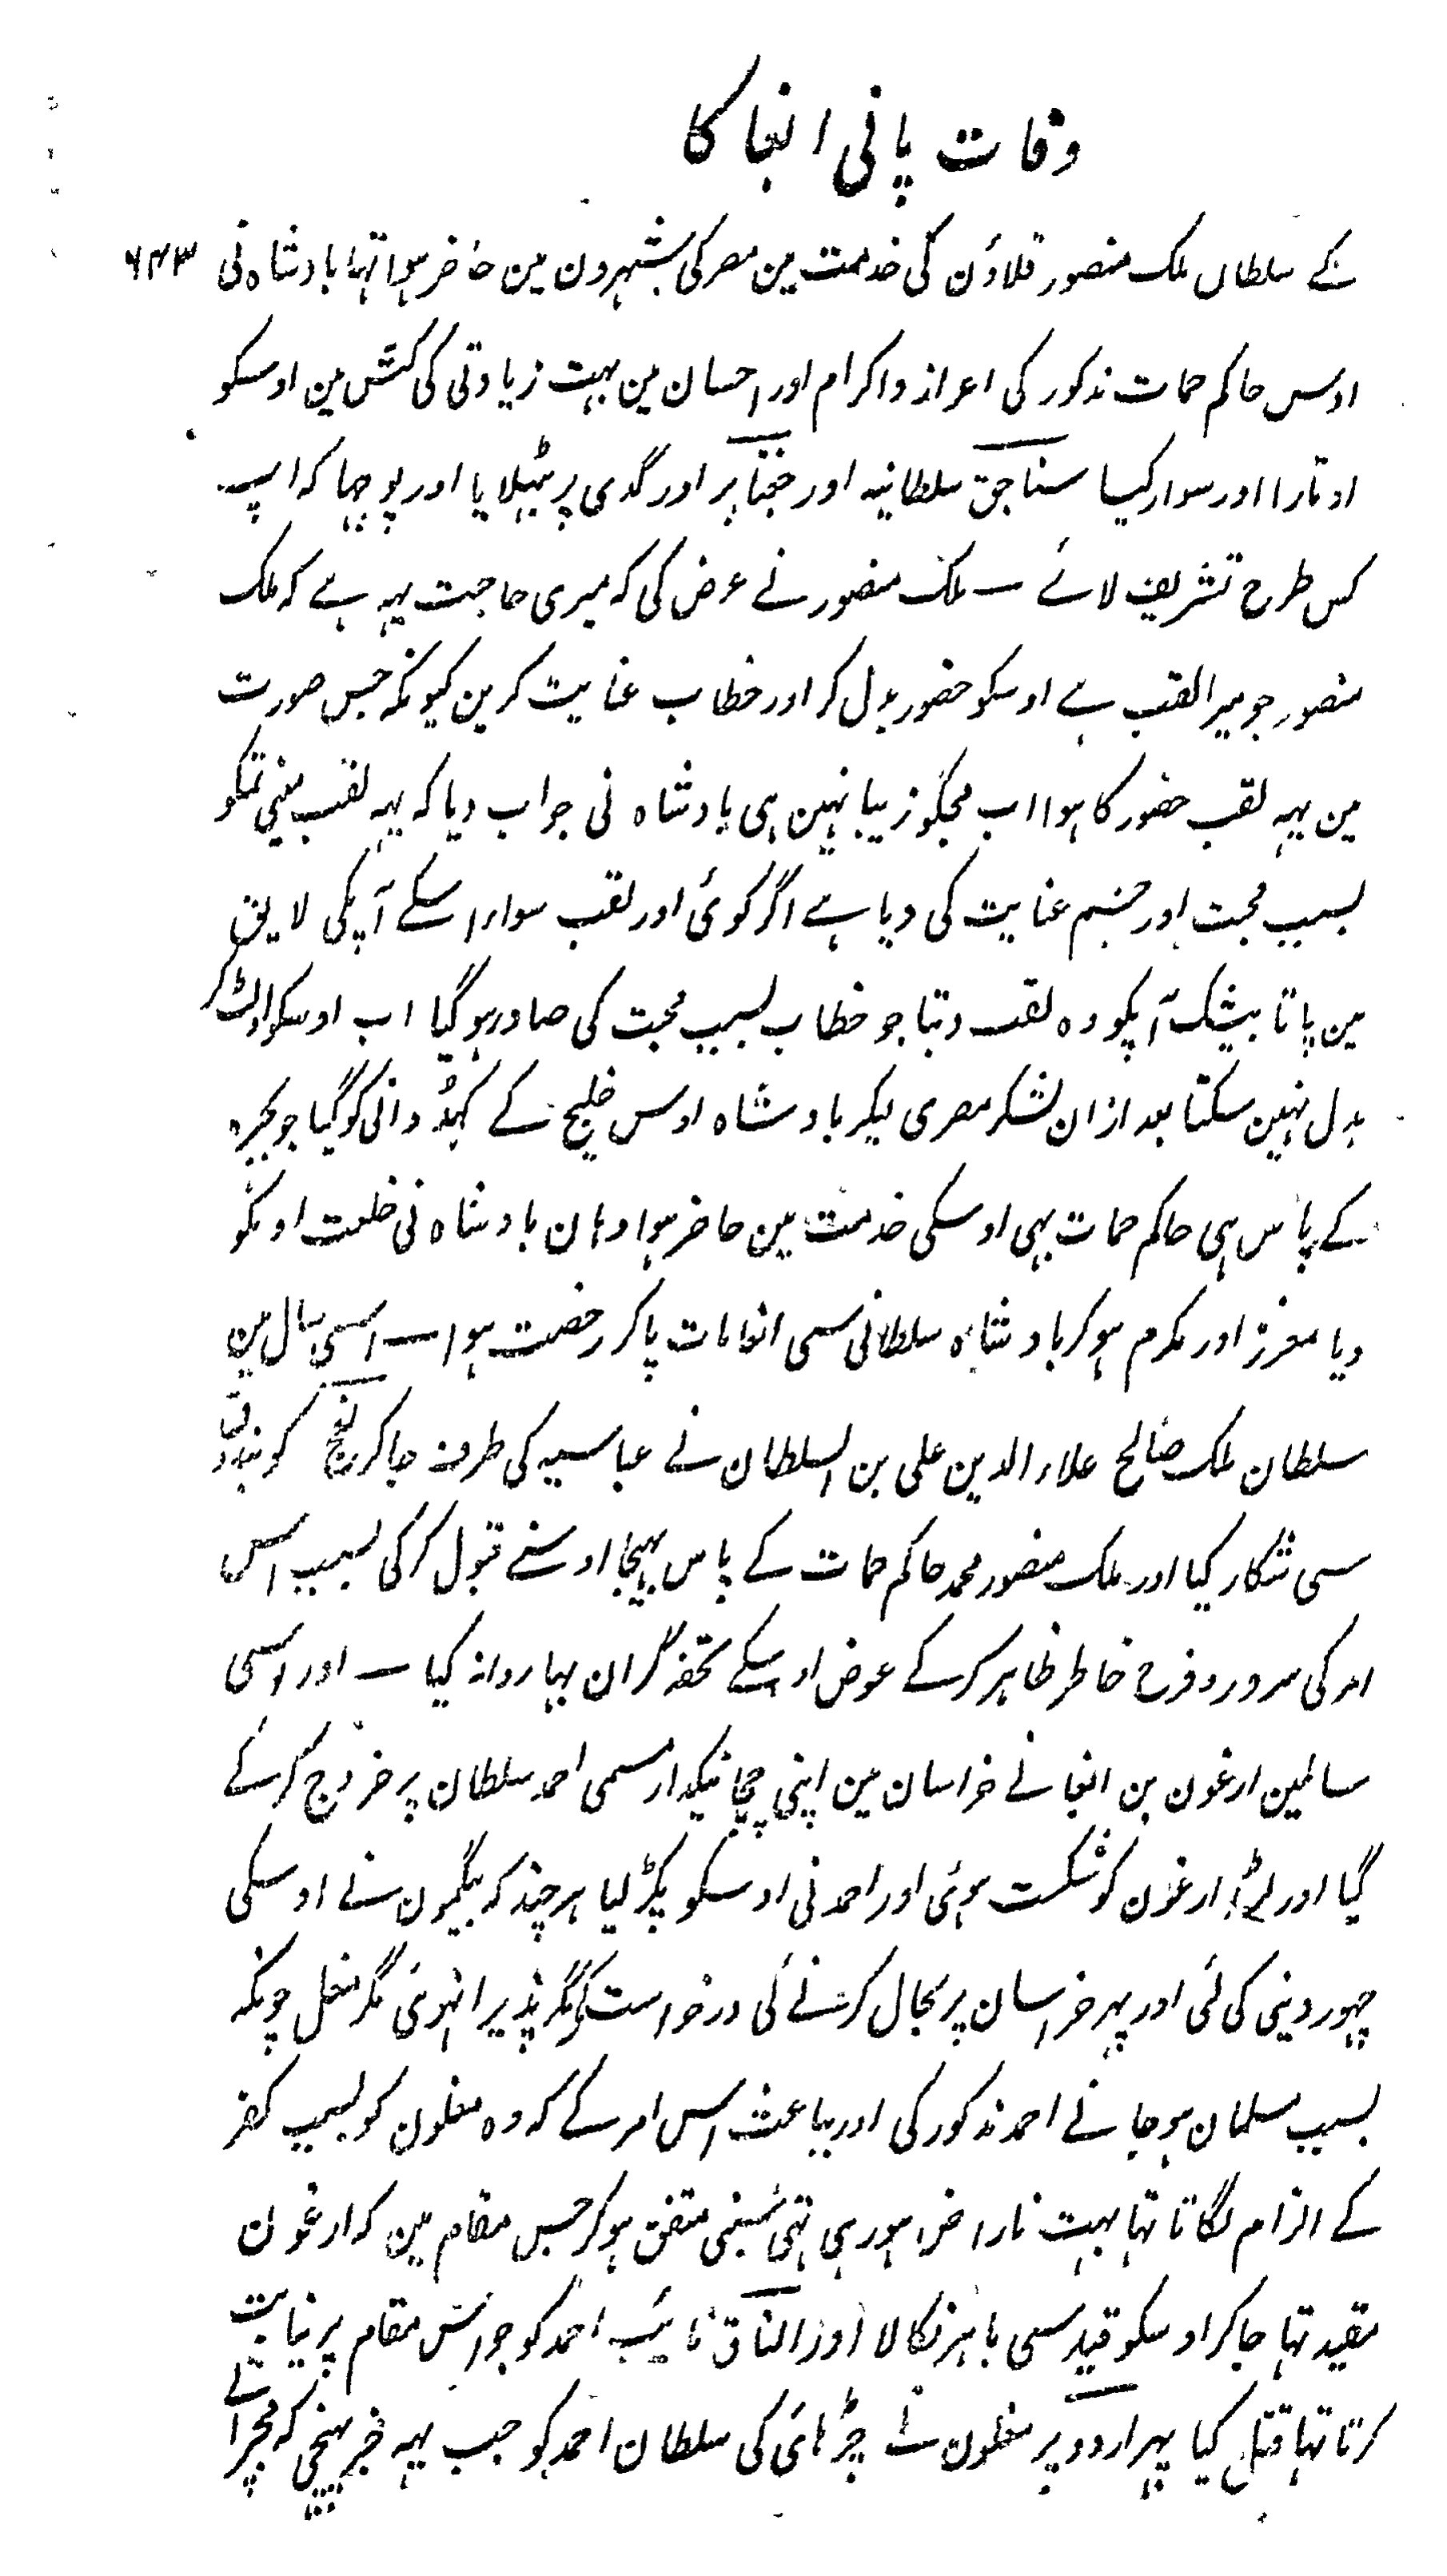 وفات پانی ابغا کا
۶۴۳
کے سلطان ملک منصور قلاؤن کی خدمت مین مصر کی شہرون مین حاضر ہوا تہا بادشاہ نی
اوس حاکم حمات مذکور کی اعزاز واکرام اور احسان مین بہت زیادتی کی کشش مین اوسکو
اوتارا اور سوار کیسا سناجق سلطانیہ اور جفتا پر اور گدی پر بٹہلایا اور پوچہا کہ اپ
کس طرح تشریف لائے ــ ملک منصور نے عرض کی کہ میری حاجت یہہ ہے کہ ملک
منصور جو میرا لقب ہے اوسکو حضور بدل کر اور خطاب عنایت کرین کیونکہ جس صورت
مین یہہ لقب حضور کا ہوا اب مجکو زیبا نہین ہی بادشاہ نی جواب دیا کہ یہہ لقب مینی تمکو
بسبب محبت اور چشم عنایت کی دیا ہے اگر کوئی اور لقب سواء اسکے آپکی لایق
مین پاتا بیشک آپکو وہ لقب دیتا جو خطاب بسبب محبت کی صادر ہو گیا اب اوسکو الٹ کر
بدل نہین سکتا بعد ازان لشکر مصری لیکر بادشاہ اوس خلیج کے کہدوانی کو گیا جو بحیرہ
کے پاس ہی حاکم حمات بہی اوسکی خدمت مین حاضر ہوا وہان بادشاہ نی خلعت اونکو
دیا معزز اور مکرم ہو کر بادشاہ سلطانی سی انعامات پا کر رخصت ہوا ــ اسی سال مین
سلطان ملک صالح علاء الدین علی بن السلطان نے عباسیہ کی طرف جا کر کو بندوق
سی شکار کیا اور ملک منصور محمد حاکم حمات کے پاس بہیجا اوسنے قبول کر کی بسبب اس
امر کی سرور و فرح خاطر ظاہر کر کے عوض اوسکے تحفہ گران بہا روانہ کیا ــ اور اسی
سالمین ارغون بن ابغا نے خراسان مین اپنی چچا نیکدار مسمی احمد سلطان پر خروج کر کے
گیا اور لڑا ارغون کو شکست ہوئی اور احمد نی اوسکو پکڑ لیا ہر چند کہ بیگمون نے اوسکی
چہور دینی کی لئی اور پہر خراسان پر بحال کرنے کی درخواست کی مگر پذیرا نہوئی مگر مغل چونکہ
بسبب مسلمان ہو جانے احمد مذکور کی اور بباعث اس امر کے کہ وہ مغلون کو بسبب کفر
کے الزام لگاتا تہا بہت ناراض ہو رہی تہی متفق ہو کر جس مقام مین کہ ارغون
مقید تہا جا کر اوسکو قید سی باہر نکالا اور الناق نایب احمد کو جو اس مقام پر نیابت
کرتا تہا قتل کیا پہر اردو پر مغلون نے چڑہائی کی سلطان احمد کو جب یہہ خبر پہنچی کہ